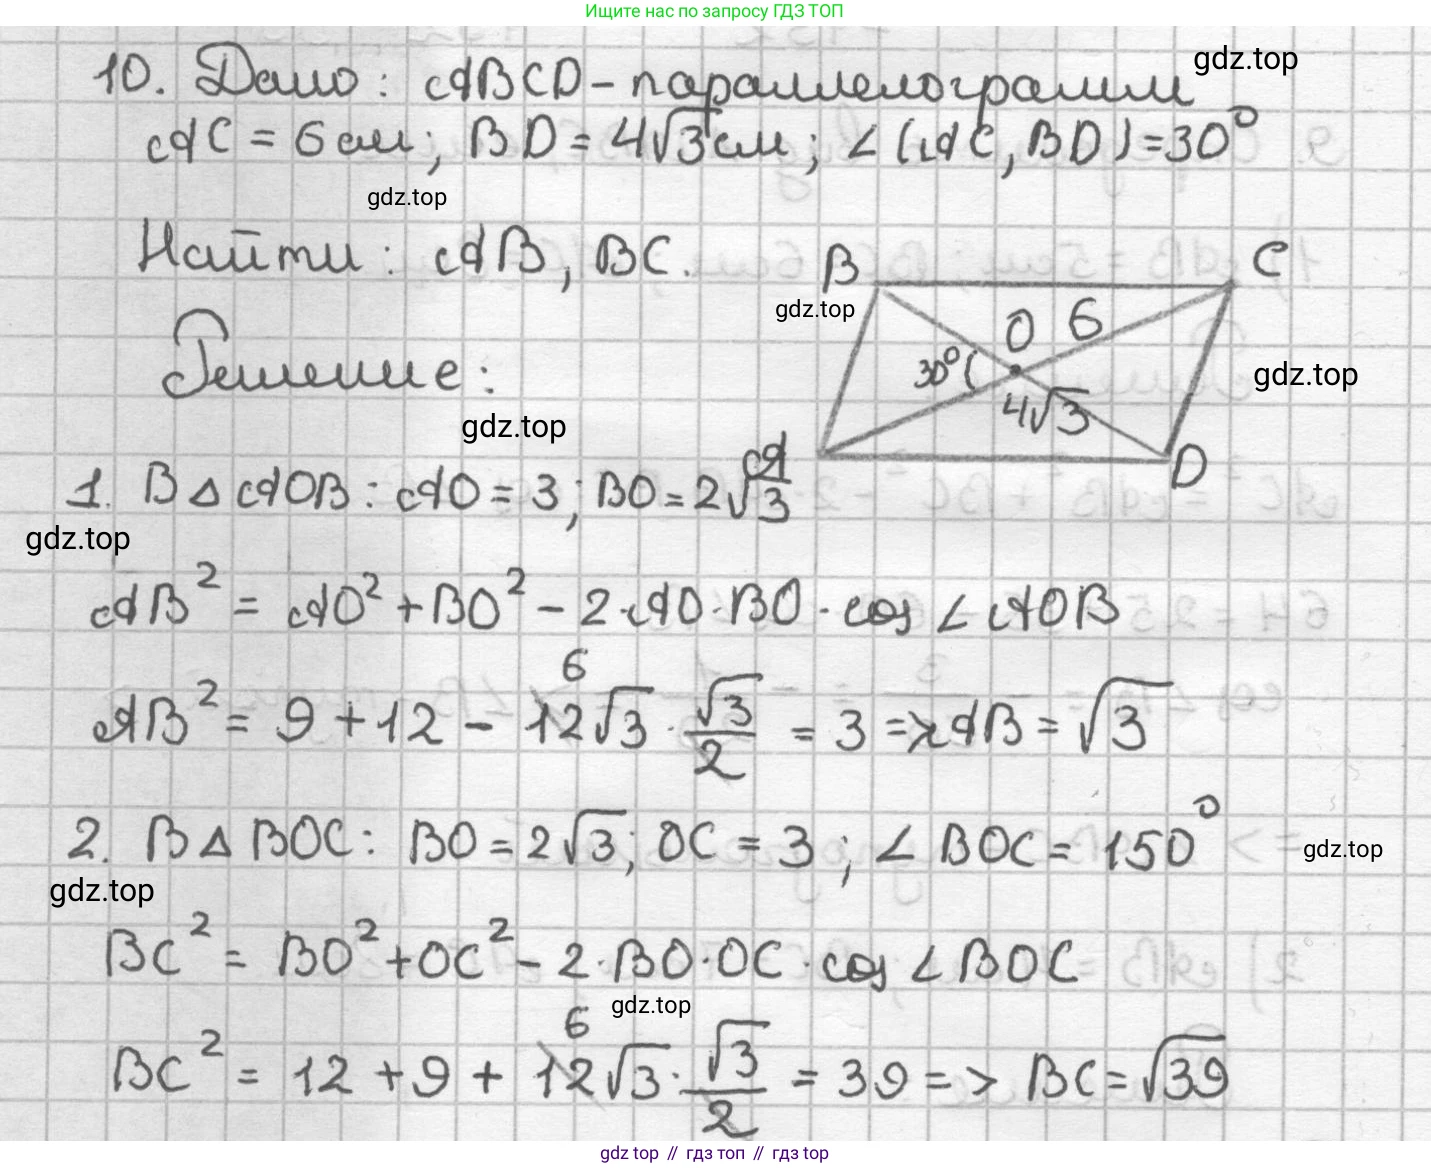 Ищите нас по запросу ГДЗ ТОП
10. Дано: ABCD - параллелограмм
gdz.top
AC = 6 см; BD = 4√3 см; ∠(AC, BD) = 30°
gdz.top
Найти: AB, BC.
B
C
gdz.top
O
6
30°
4√3
gdz.top
Решение:
gdz.top
A
D
1. В △ AOB: AO = 3; BO = 2√3
gdz.top
AB² = AO² + BO² - 2·AO·BO·cos ∠AOB
6
AB² = 9 + 12 - 12√3 · √3/2 = 3 => AB = √3
2. В △ BOC: BO = 2√3; OC = 3; ∠BOC = 150°
gdz.top
gdz.top
BC² = BO² + OC² - 2·BO·OC·cos ∠BOC
gdz.top
6
BC² = 12 + 9 + 12√3 · √3/2 = 39 => BC = √39
gdz.top // гдз топ // гдз top